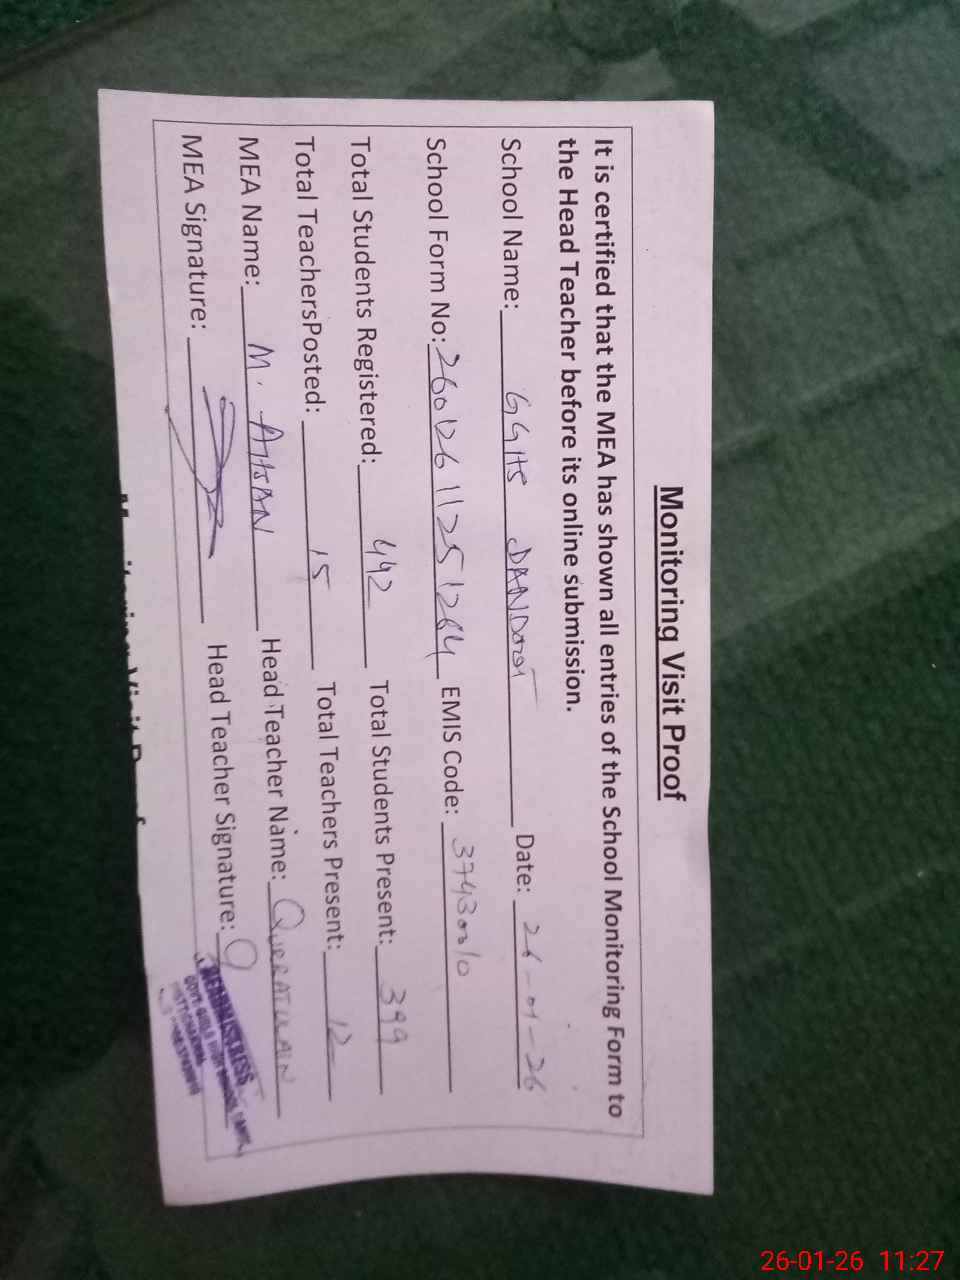 Monitoring Visit Proof
It is certified that the MEA has shown all entries of the School Monitoring Form to
the Head Teacher before its online submission.
School Name: GGHS DANDOT Date: 26-01-26
School Form No: 26012611251264 EMIS Code: 37430010
Total Students Registered: 442 Total Students Present: 399
Total TeachersPosted: 15 Total Teachers Present: 12
MEA Name: M. AHSAN Head Teacher Name: QURRATULAIN
MEA Signature: Head Teacher Signature:
HEADMISTRESS
GOVT. GIRLS HIGH SCHOOL
26-01-26 11:27